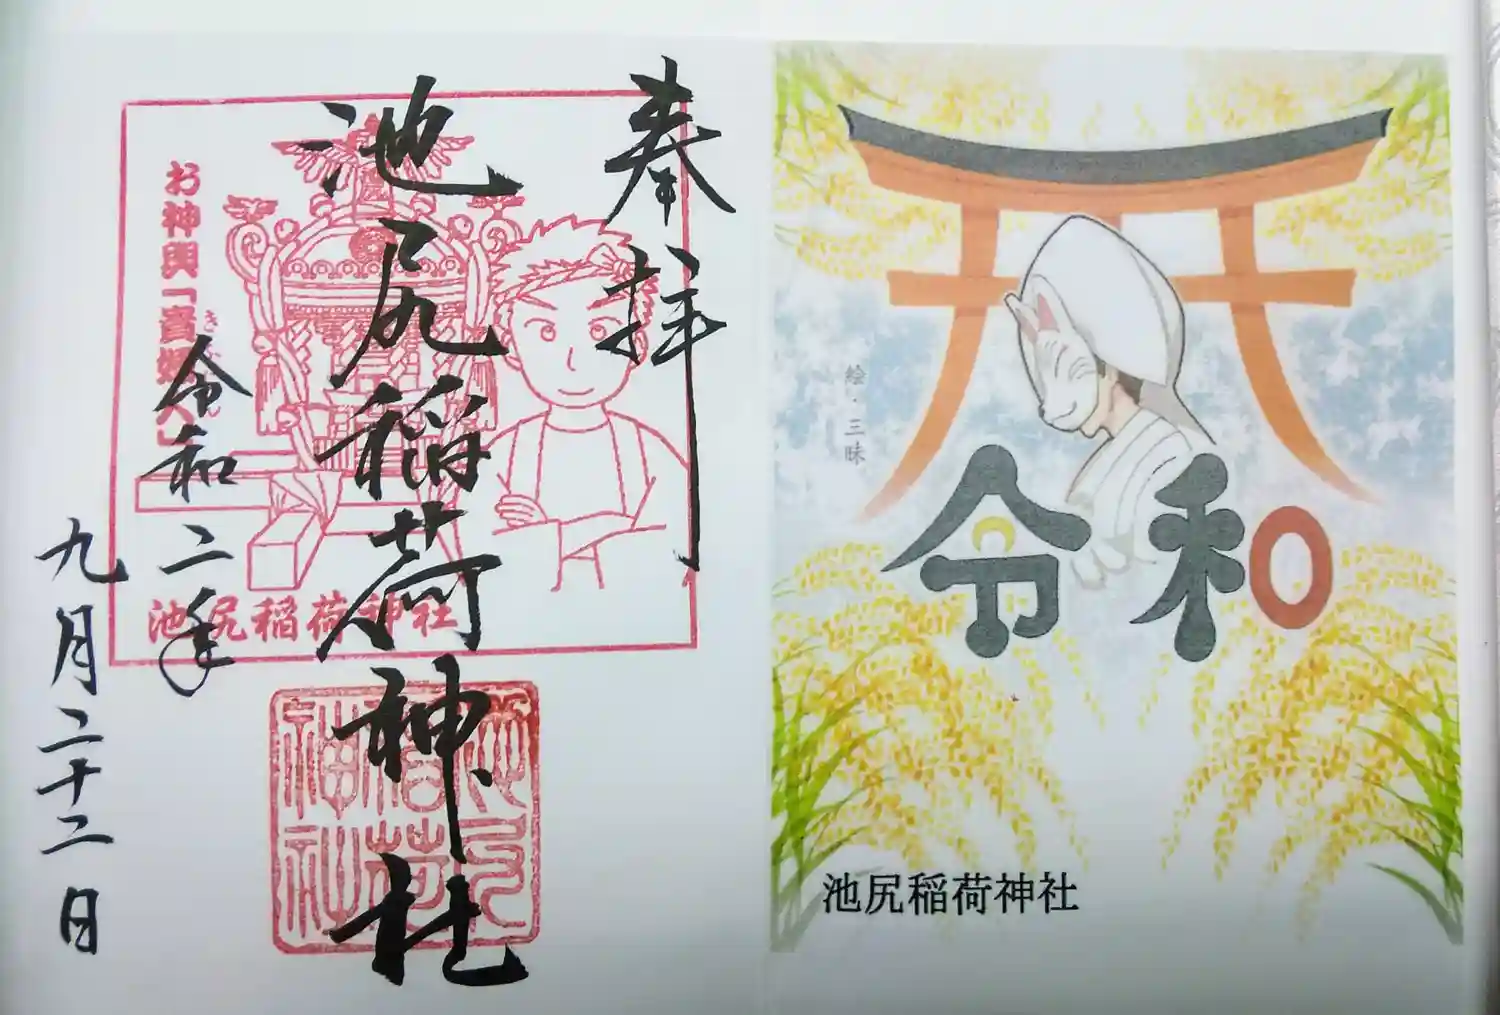 令和
絵・三昧
池尻稲荷神社
奉拝
池尻稲荷神社
令和二年
九月二十二日
お神輿「
きぶ
ん
池尻稲荷神社
池尻
稲荷
神社